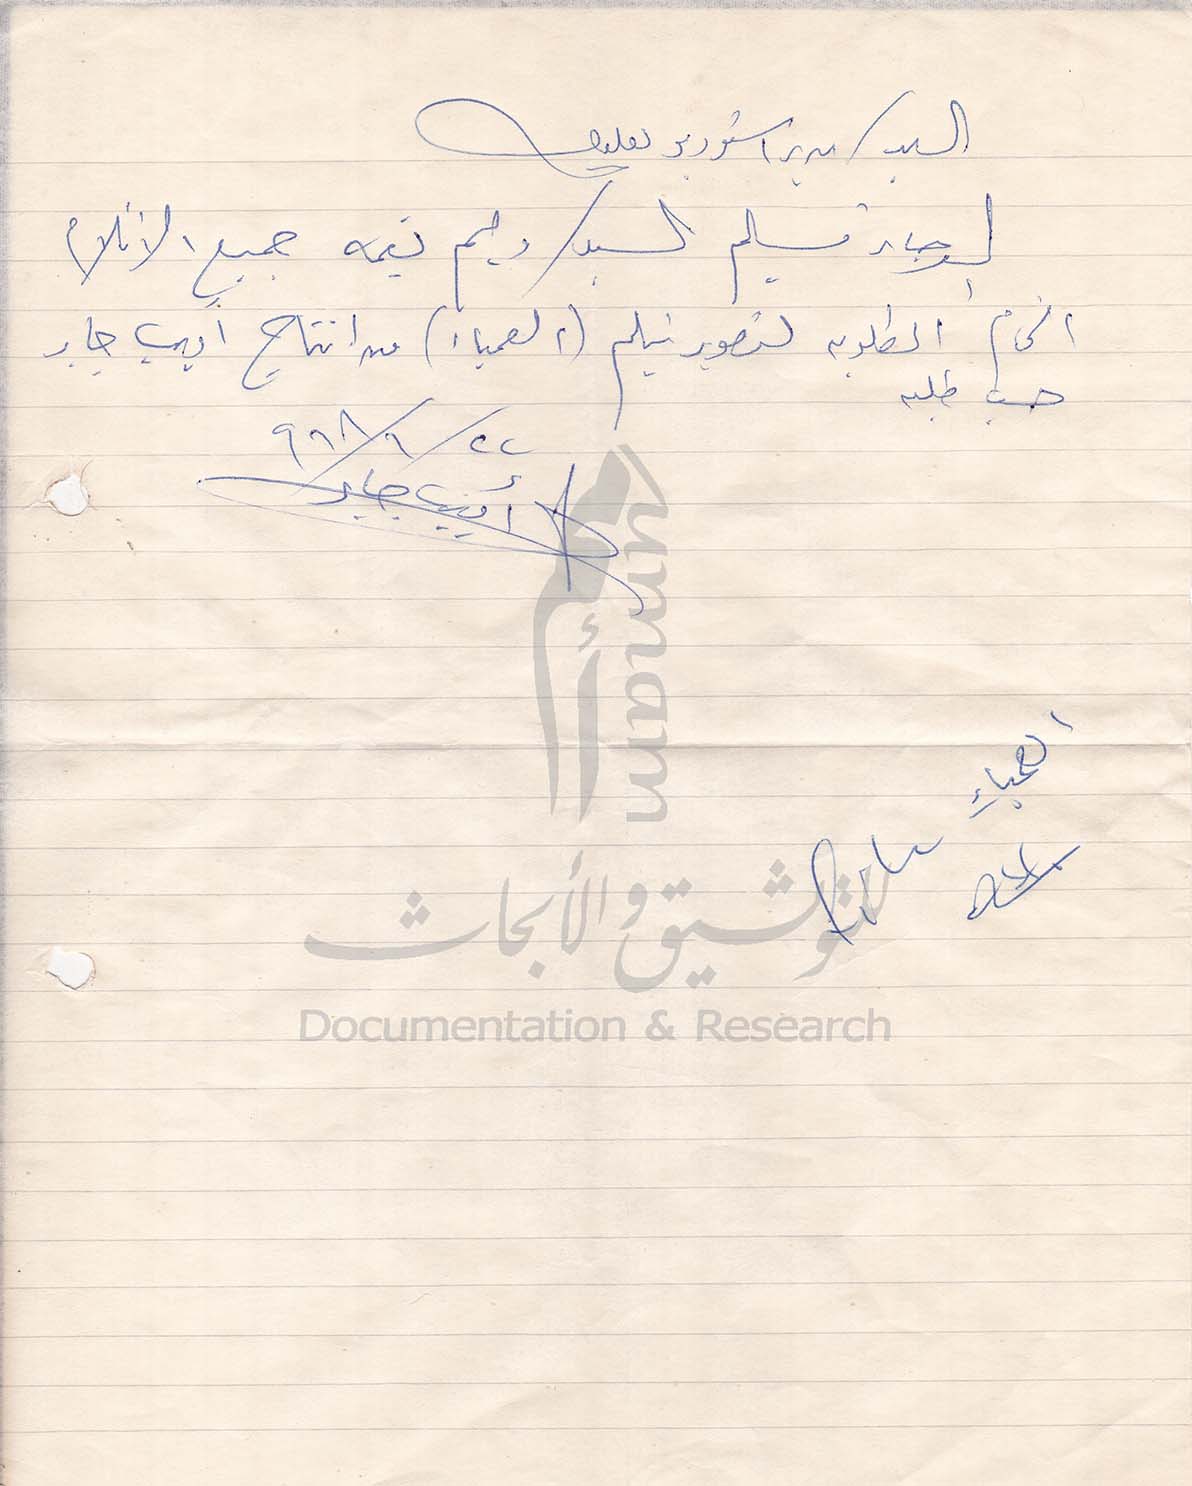 السيد / مدير استوديو بعلبك
الرجاء تسليم السيد / وليم نعمه جميع الافلام
الخام المطلوبه لتصوير فيلم (العمياء) من انتاج أديب جابر
حسب طلبه
٢٢/٦/٩٦٨
أديب جابر
العمياء
umam
للتوثيق والأبحاث
Documentation & Research